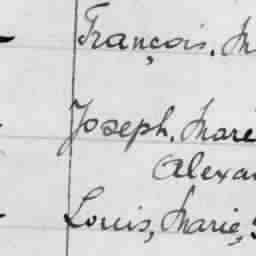 François. M
Joseph. Marie
Alexan
Louis, Marie,